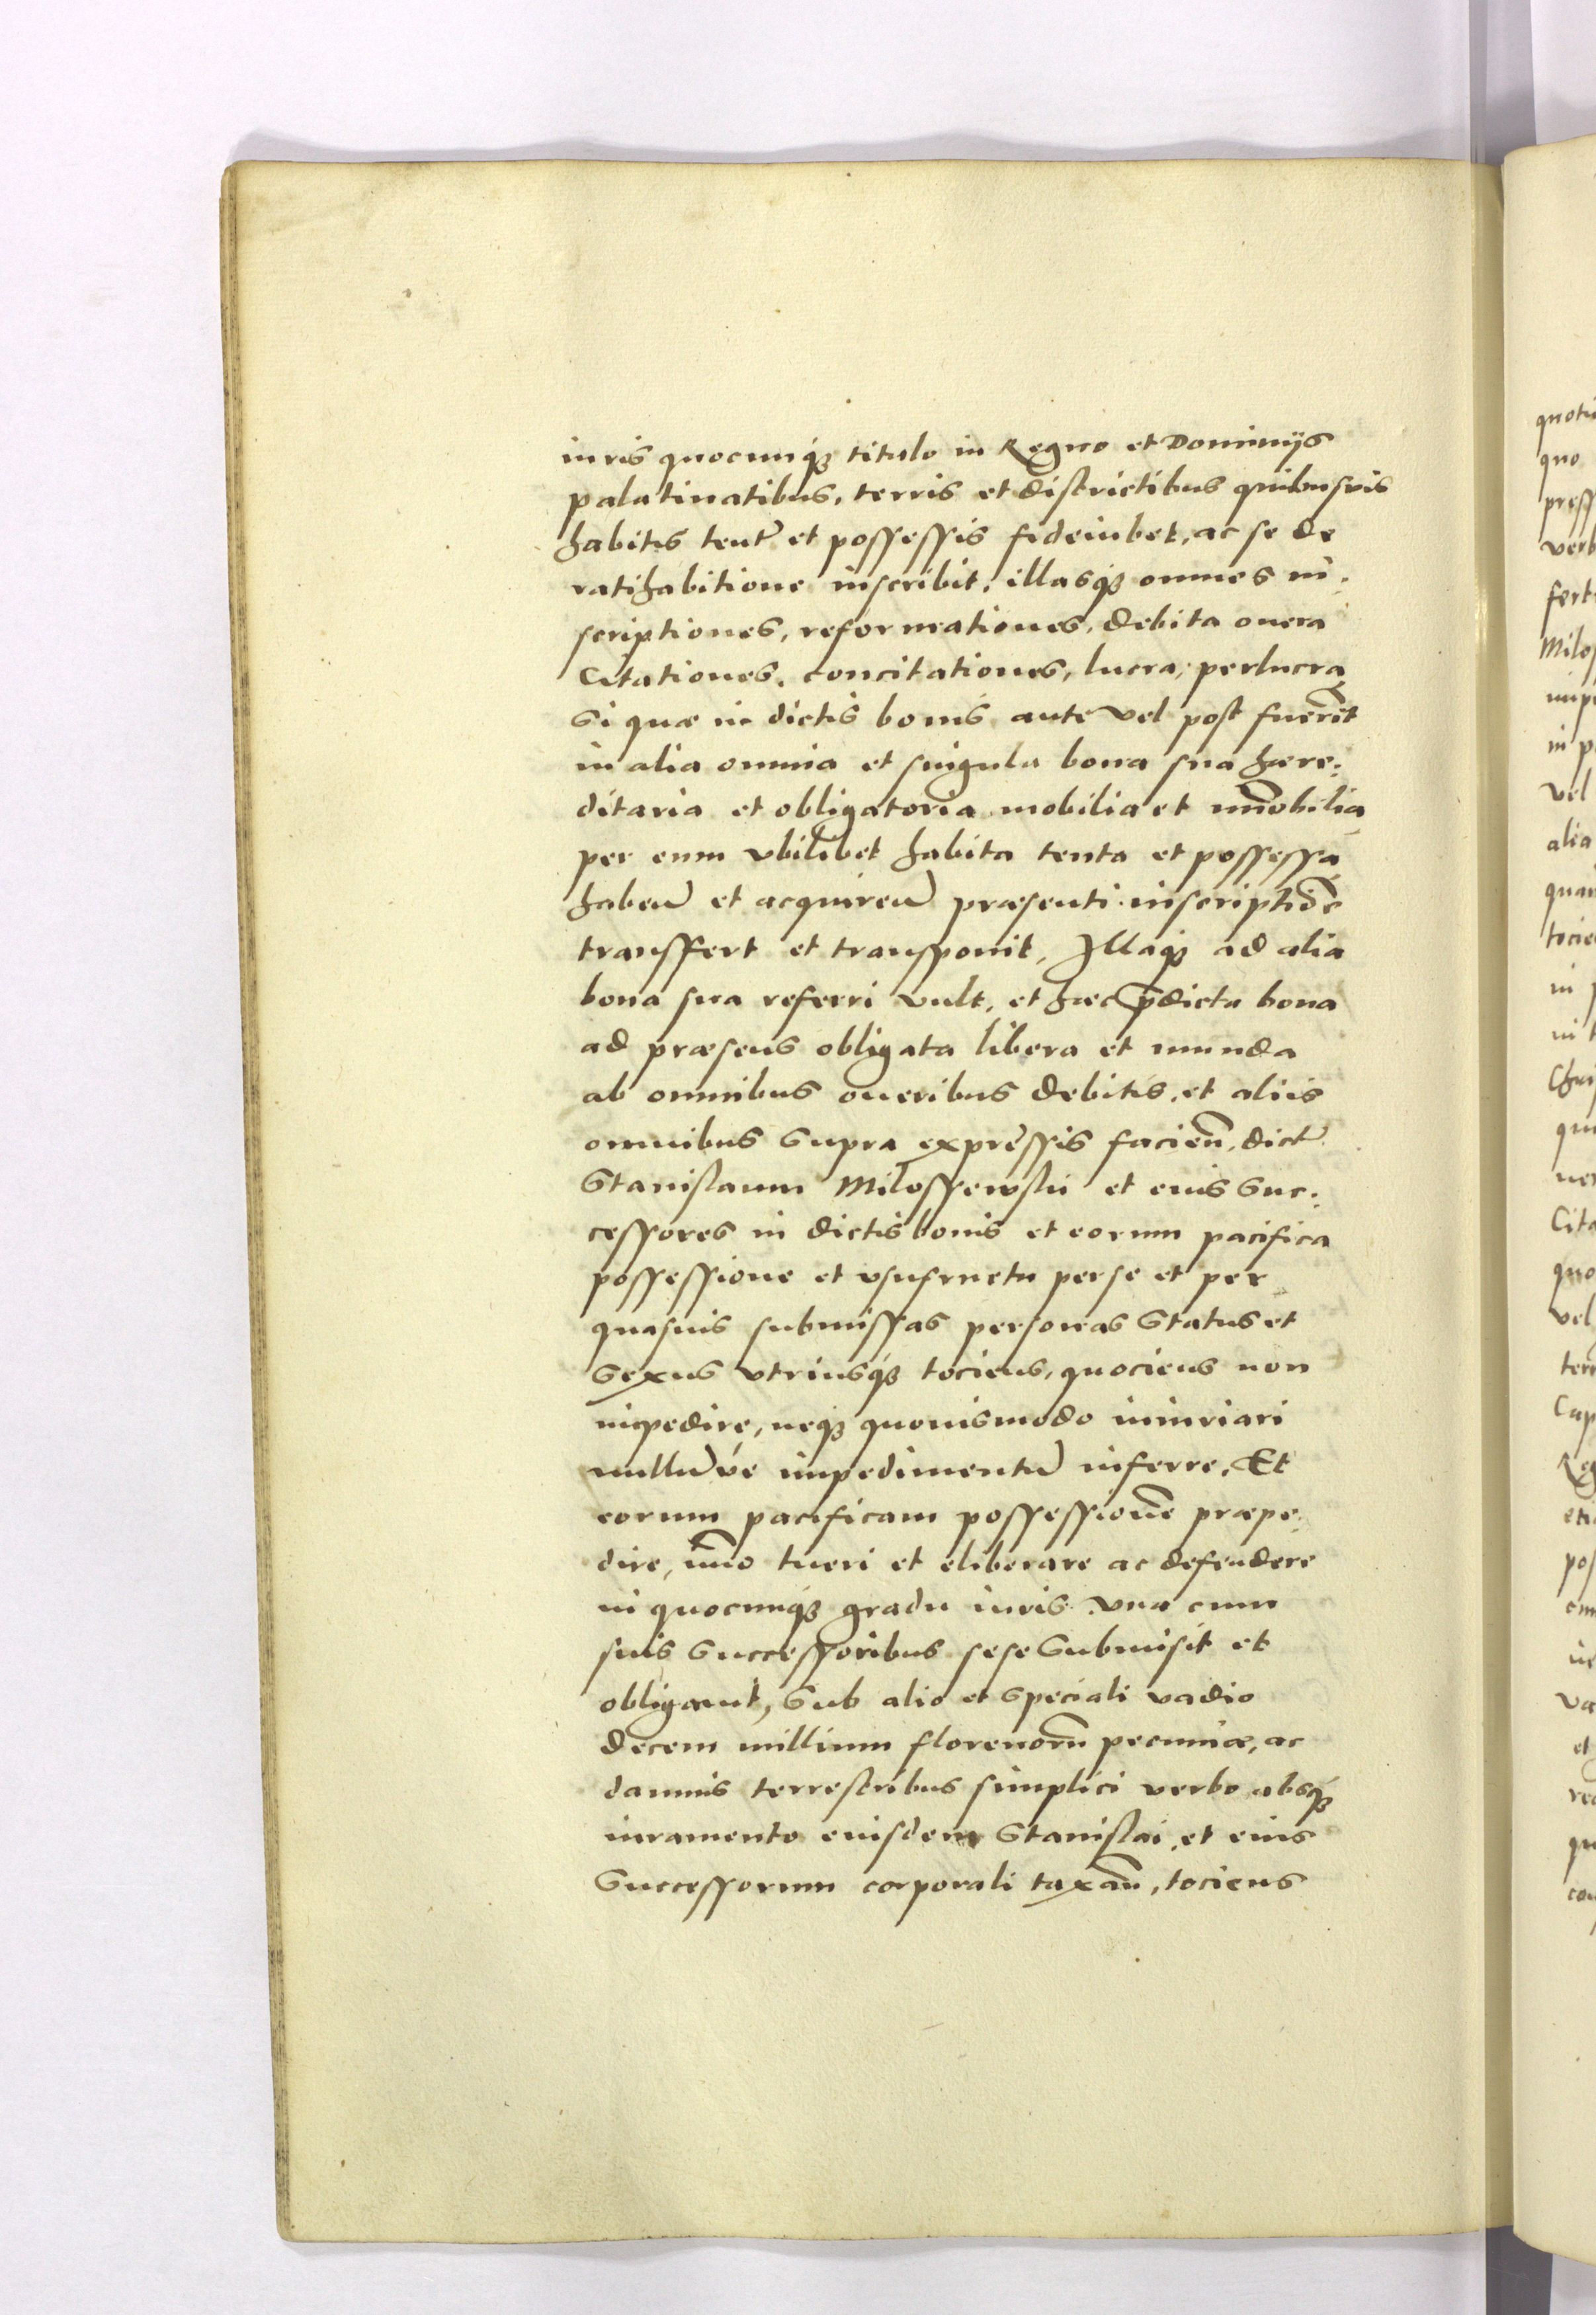 iuris quocunq₃ titulo in Regno et Dominijs
palatinatibus, terris et districtibus quibusvis
habitis tent̃ et possessis fideiubet, ac se de
ratihabitione inscribit, illasq₃ omnes in:
scriptiones, reformationes, debita onera
Citationes, concitationes, lucra, perlucra
Si quæ in dictis bonis ante vel post fuerĩt
in alia omnia et singula bona sua hære:
ditaria et obligatoria mobilia et im̃obilia
per eum vbilibet habita tenta et possessa
habeñ et acquireñ præsenti inscriptiõe
transffert et transponit, Illaq₃ ad alia
bona sua referri vult, et hæc p̃dicta bona
ad præsens obligata libera et munda
ab omnibus oneribus debitis, et aliis
omnibus Supra expressis facieñ, dict̃
Stanislaum Milosſewski et eius Suc:
cessores in dictis bonis et eorum pacifica
possessione et vsufructu per se et per
quasuis submissas personas Status et
Sexus vtriusq₃ tociens, quociens non
impedire, neq₃ quouismodo iniuriari
nullũ vé impedimentũ inferre, Et
eorum pacificam possessionẽ præpe:
dire, im̃o tueri et eliberare ac defendere
in quocunq₃ gradu iuris vna cum
suis Successoribus sese Submisit et
obligauit, Sub alio et Speciali vadio
decem millium florenorũ pecuniæ, ac
damnis terrestribus simplici verbo absq₃
iuramento eiusdem Stanislai, et eius
Successorum corporali taxañ, tociens
quo
vel
alia
in p
vel